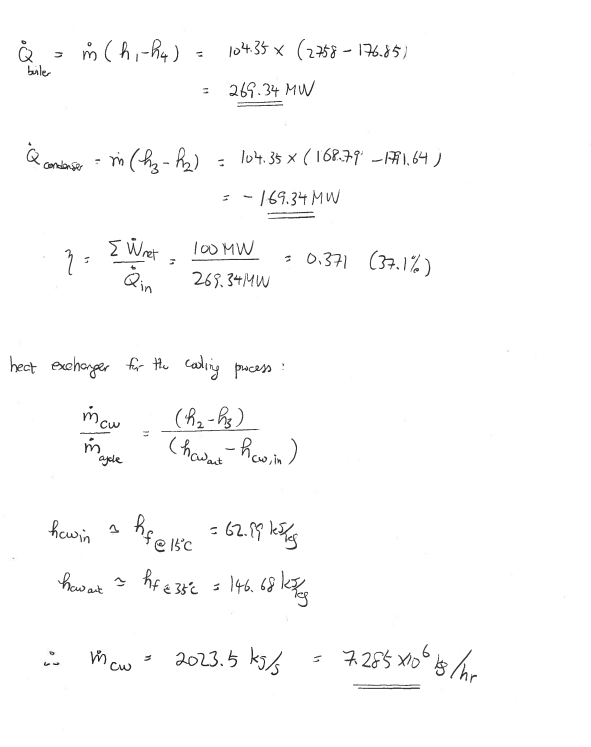 Q̇ boiler = ṁ (h₁-h₄) = 104.35 × (2758 - 176.85)
= 269.34 MW
Q̇ condenser = ṁ (h₃ - h₂) = 104.35 × (168.79 - 1791.64)
= - 169.34 MW
η = Σ Ẇnet / Q̇in = 100 MW / 269.34 MW = 0.371 (37.1%)
heat exchanger for the cooling process :
ṁcw / ṁcycle = (h₂-h₃) / (hcwout - hcw,in)
hcwin ≃ hf @ 15°C = 62.99 kJ/kg
hcwout ≃ hf @ 35°C = 146.68 kJ/kg
∴ ṁcw = 2023.5 kg/s = 7.285 ×10⁶ kg/hr